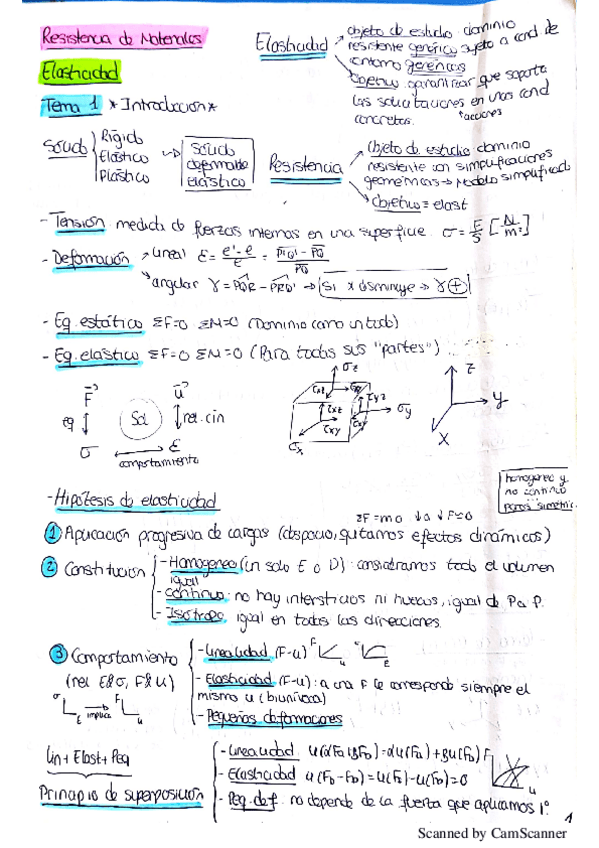 Resistencia de Materiales
Elasticidad
Tema 1 * Introducción *
Elasticidad
objeto de estudio: dominio
resistente genérico sujeto a cond. de
contorno genéricas
objetivo: garantizar que soporta
las solicitaciones en unas cond
concretas.
Sólido
Rígido
Elástico
Plástico
Sólido
deformable
elástico
Resistencia
objeto de estudio: dominio
resistente con simplificaciones
geométricas → Modelo simplificad
objetivo = elast
- Tensión medida de fuerzas internas en una superficie. σ = F/S [N/m²]
- Deformación
lineal ε = e'-e/e = P'Q' - PQ/PQ
angular
Si ∡ disminuye → γ ⊕
- Eq. estático ΣF=0 ΣM=0 (Dominio como un todo)
- Eq. elástico ΣF=0 ΣM=0 (Para todas sus "partes")
F
u
eq
Sol
rel. cin
σ
ε
comportamiento
σz
τyz
σy
τxz
τxy
σx
Z
Y
X
homogeneo y
no continuo
- Hipótesis de elasticidad
① Aplicación progresiva de cargas (despacio, quitamos efectos dinámicos)
② Constitución
- Homogeneo (un solo E o D): consideramos todo el volumen
igual
- continuo: no hay intersticios ni huecos, igual de P a P.
- Isótropo, igual en todas las direcciones.
③ Comportamiento
(rel ε&σ, F&u)
implica
- Linealidad (F-u)
- Elasticidad (F-u): a una F le corresponde siempre el
mismo u (biunívoca)
- Pequeñas deformaciones
Lin + Elast + Peq
Principio de superposición
- Linealidad u(αFa+βFb) = αu(Fa) + βu(Fb)
- Elasticidad u(Fb-Fb) = u(F)-u(Fb) = 0
- Peq. def. no depende de la fuerza que aplicamos 1º.
1
Scanned by CamScanner